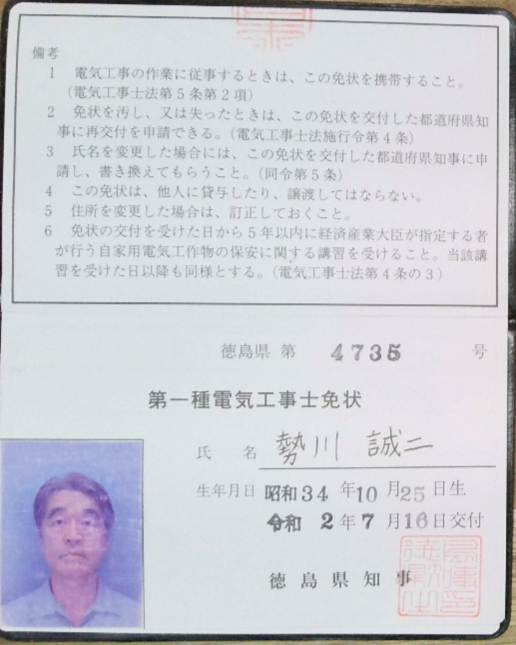 備考
1 電気工事の作業に従事するときは、この免状を携帯すること。
(電気工事士法第5条第2項)
2 免状を汚し、又は失ったときは、この免状を交付した都道府県知
事に再交付を申請できる。(電気工事士法施行令第4条)
3 氏名を変更した場合には、この免状を交付した都道府県知事に申
請し、書き換えてもらうこと。(同令第5条)
4 この免状は、他人に貸与したり、譲渡してはならない。
5 住所を変更した場合は、訂正しておくこと。
6 免状の交付を受けた日から5年以内に経済産業大臣が指定する者
が行う自家用電気工作物の保安に関する講習を受けること。当該講
習を受けた日以降も同様とする。(電気工事士法第4条の3)
徳島県 第 4735 号
第一種電気工事士免状
氏名 勢川 誠二
生年月日 昭和34年10月25日生
令和2年7月16日交付
徳島県知事